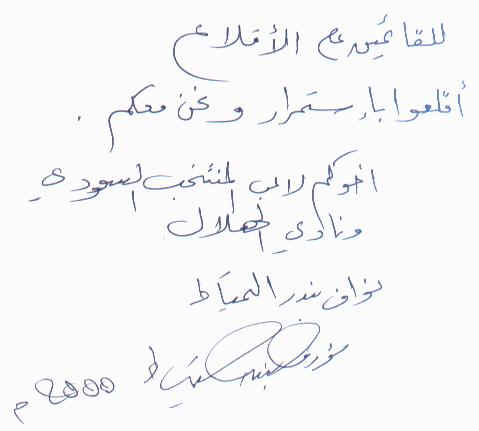 للقائمين على الأقلاع
أقلعوا باستمرار ونحن معكم .
اخوكم لاعب المنتخب السعودي
ونادي الهلال
نواف بندر التمياط
2000 م